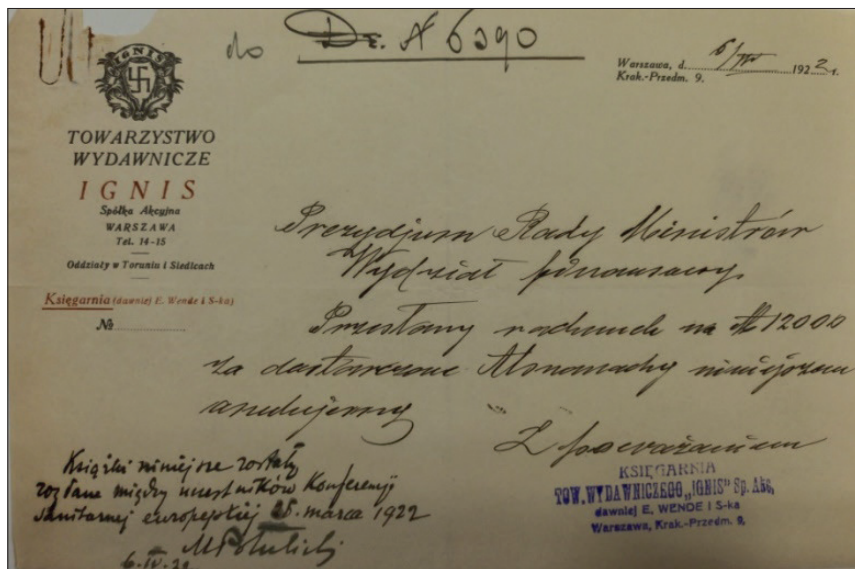 do Dr. N 6390
Warszawa, d. 5/IV 1922 r.
Krak.-Przedm. 9.
IGNIS
TOWARZYSTWO
WYDAWNICZE
IGNIS
Spółka Akcyjna
WARSZAWA
Tel. 14-15
Oddziały w Toruniu i Siedlcach
Księgarnia (dawniej E. Wende i S-ka)
№
Prezydjum Rady Ministrów
Wydział finansowy
Przesłany rachunek na 12000
za dostarczone Almanachy niniejszem
anulujemy
Z poważaniem
KSIĘGARNIA
TOW. WYDAWNICZEGO „IGNIS" Sp. Akc.
dawniej E. WENDE i S-ka
Warszawa, Krak.-Przedm. 9.
Książki niniejsze zostały
rozdane między uczestników Konferencji
sanitarnej europejskiej 25. marca 1922
6.IV.22